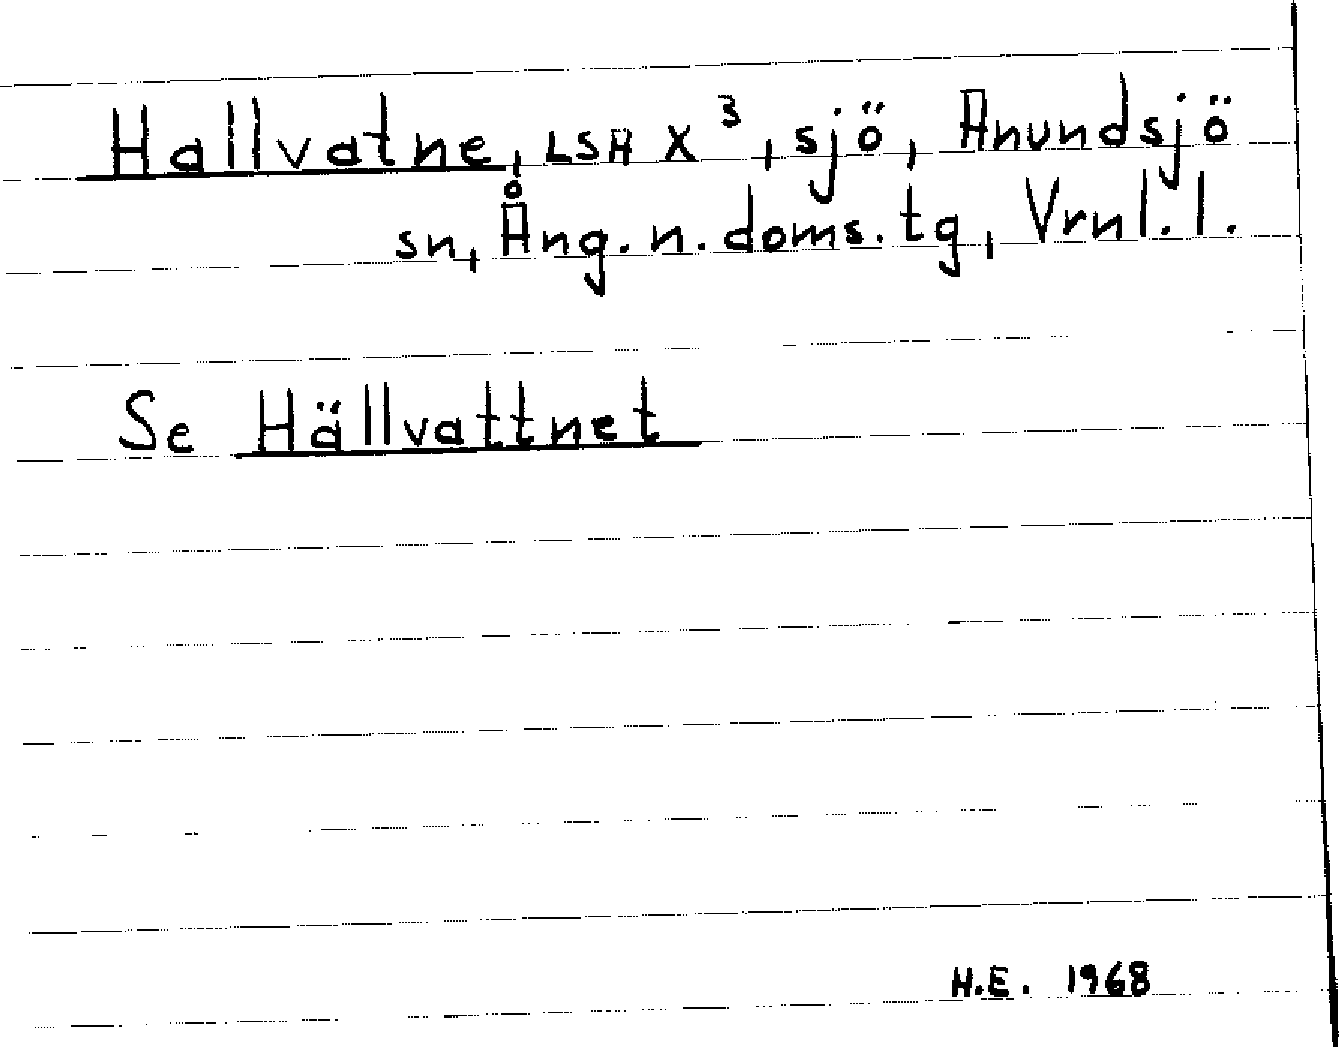 Hallvatne, LSA X³, sjö, Anundsjö
sn, Ång. n. doms. tg, Vrnl. l.
Se Hällvattnet
H.E. 1968